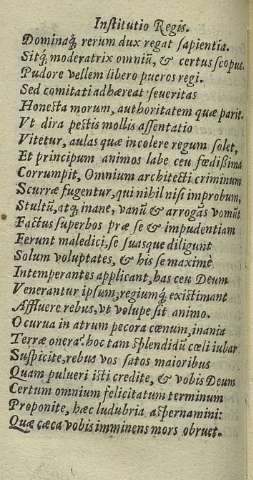 Institutio Regis.
Dominaq́; rerum dux regat sapientia.
Sitq́; moderatrix omniũ, & certus scopus.
Pudore vellem libero pueros regi.
Sed comitati adhæreat seueritas
Honesta morum, authoritatem quæ parit.
Vt dira pestis mollis assentatio
Vitetur, aulas quæ incolere regum solet,
Et principum animos labe ceu fœdißima
Corrumpit, Omnium architecti criminum
Scurræ fugentur, qui nihil nisi improbum,
Stultũ, atq́; inane, vanũ & arrogãs vomũt
Factus superbos præ se & impudentiam
Ferunt maledici, se suasque diligunt
Solum voluptates, & his se maximè
Intemperantes applicant, has ceu Deum
Venerantur ipsum, regiumq́; existimant
Affluere rebus, vt volupe sit animo.
O curua in atrum pecora cœnum, inania
Terræ onera: hoc tam splendidũ cœli iubar
Suspicite, rebus vos satos maioribus
Quam pulueri isti credite, & vobis Deum
Certum omnium felicitatum terminum
Proponite, hæc ludubria aspernamini:
Quæ cæca vobis imminens mors obruet.